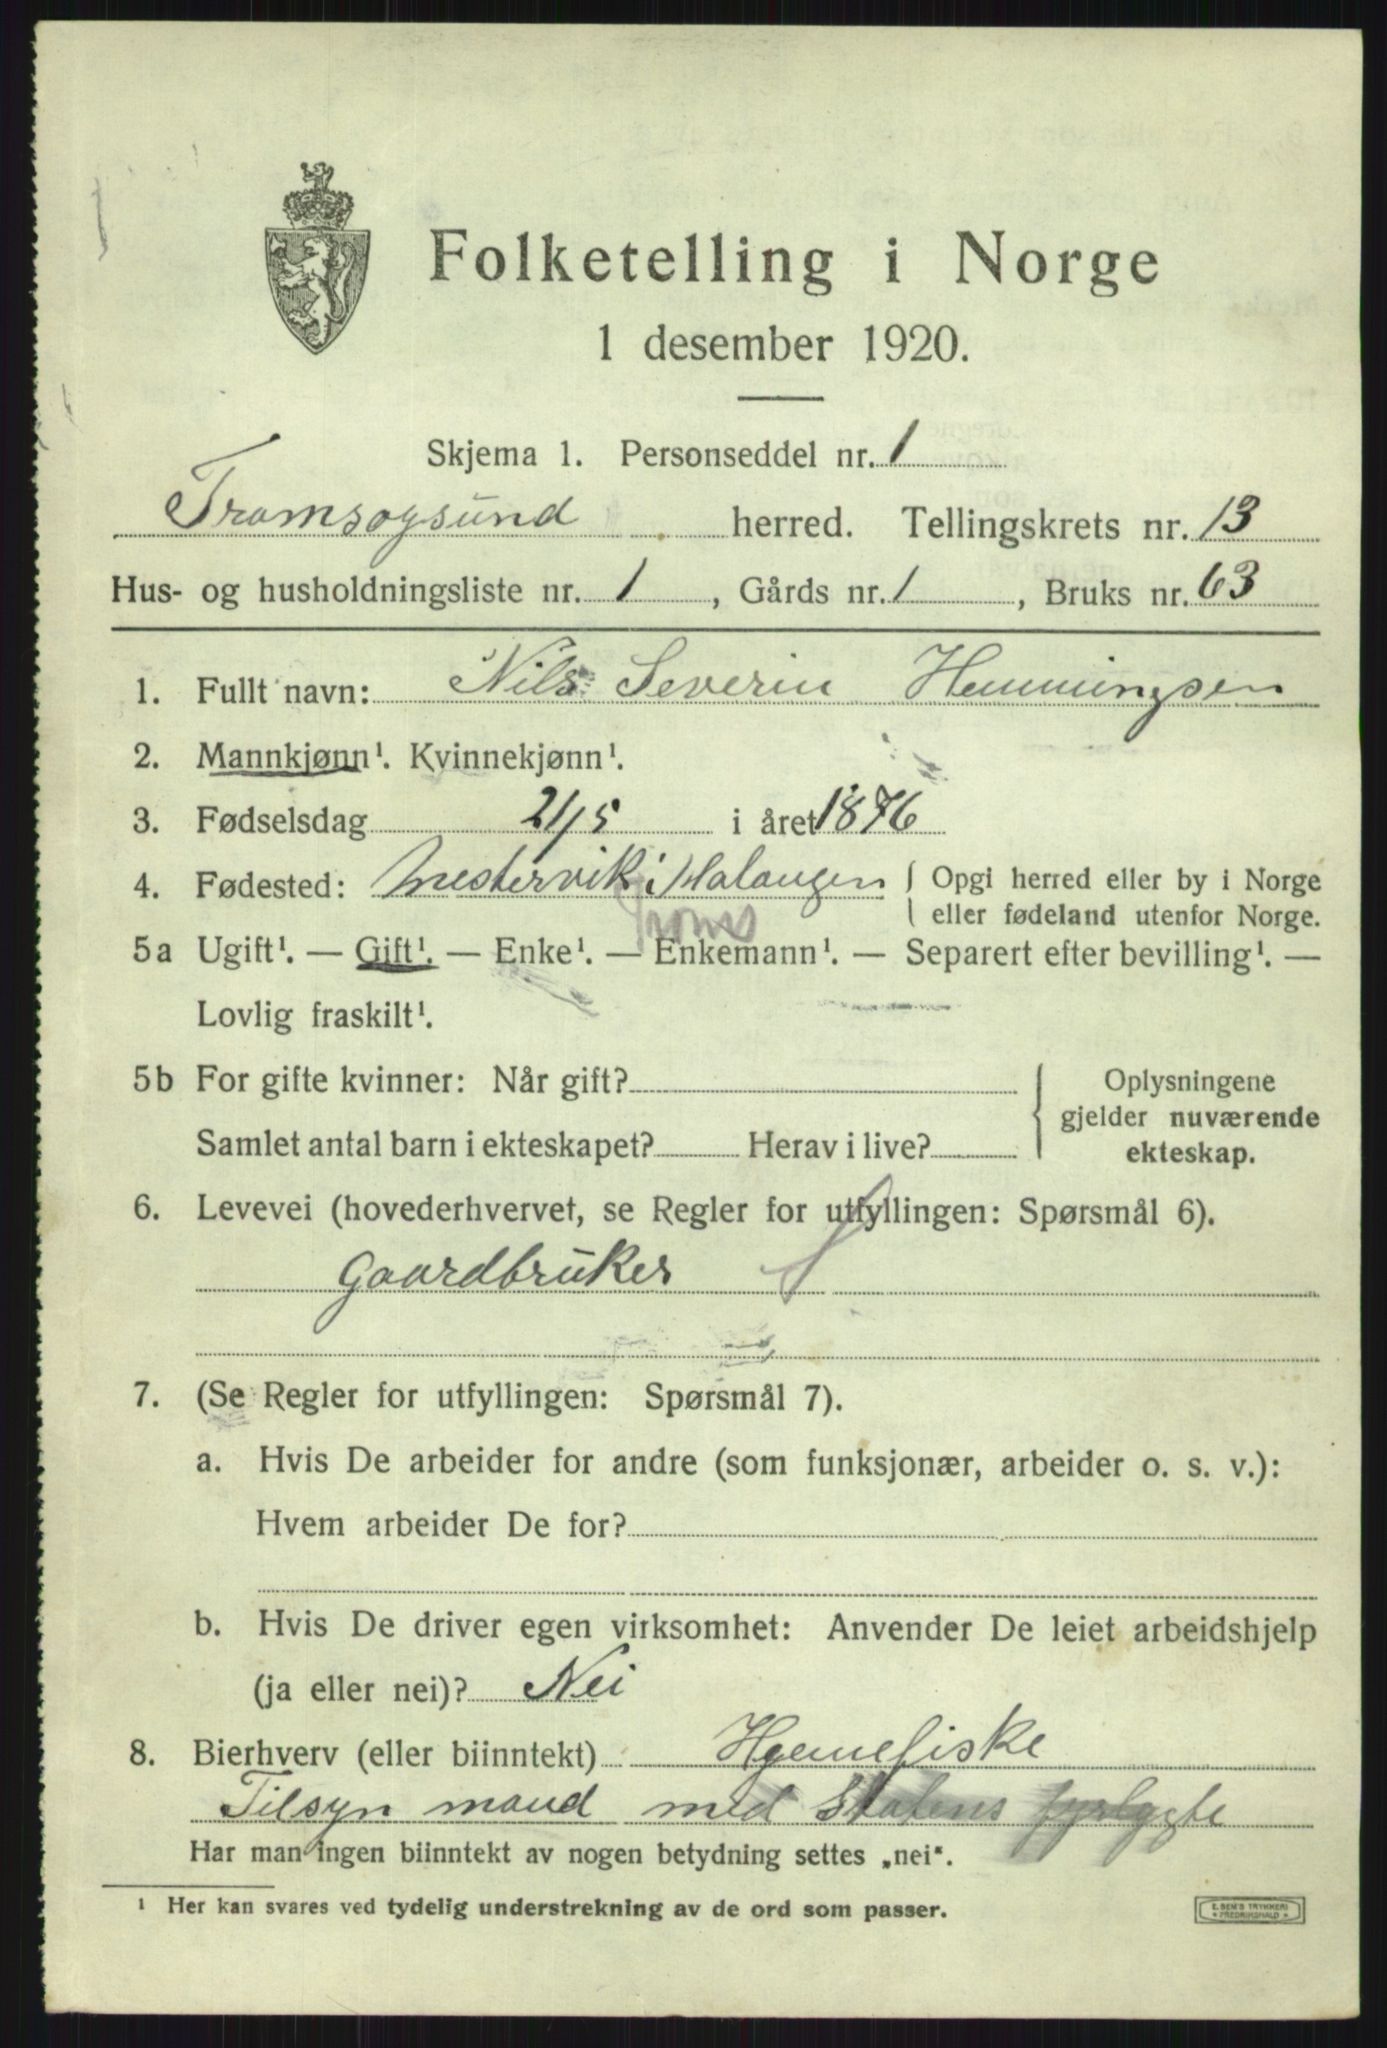 Folketelling i Norge
1 desember 1920.
Skjema 1. Personseddel nr. 1
Tromsøysund herred. Tellingskrets nr. 13
Hus- og husholdningsliste nr. 1, Gårds nr. 1, Bruks nr. 63
1. Fullt navn: Nils Severin Hemmingsen
2. Mannkjønn¹. Kvinnekjønn¹.
3. Fødselsdag 21/5 i året 1876
4. Fødested: Mestervik i Malangen { Opgi herred eller by i Norge
eller fødeland utenfor Norge.
Troms
5a Ugift¹. — Gift¹. — Enke¹. — Enkemann¹. — Separert efter bevilling¹. —
Lovlig fraskilt¹.
5b For gifte kvinner: Når gift? Oplysningene
gjelder nuværende
Samlet antal barn i ekteskapet? Herav i live? ekteskap.
6. Levevei (hovederhvervet, se Regler for utfyllingen: Spørsmål 6).
Gaardbruker
7. (Se Regler for utfyllingen: Spørsmål 7).
a. Hvis De arbeider for andre (som funksjonær, arbeider o. s. v.):
Hvem arbeider De for?
b. Hvis De driver egen virksomhet: Anvender De leiet arbeidshjelp
(ja eller nei)? Nei
8. Bierhverv (eller biinntekt) Hjemefiske
Tilsyn mand med Statens fyrlygte
Har man ingen biinntekt av nogen betydning settes „nei".
¹ Her kan svares ved tydelig understrekning av de ord som passer.
E. SEM'S TRYKKERI
FREDRIKSHALD